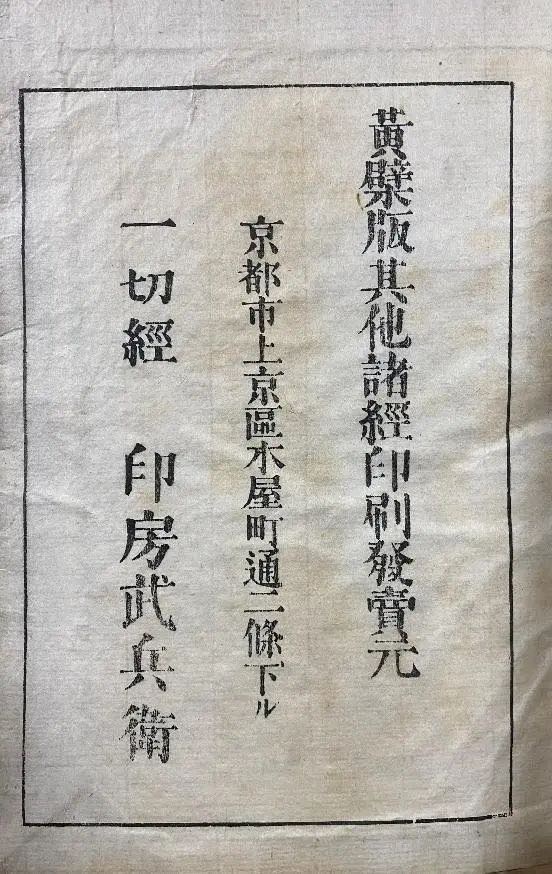 黃檗版其他諸經印刷發賣元
京都市上京區木屋町通二條下ル
一切經 印房武兵衞